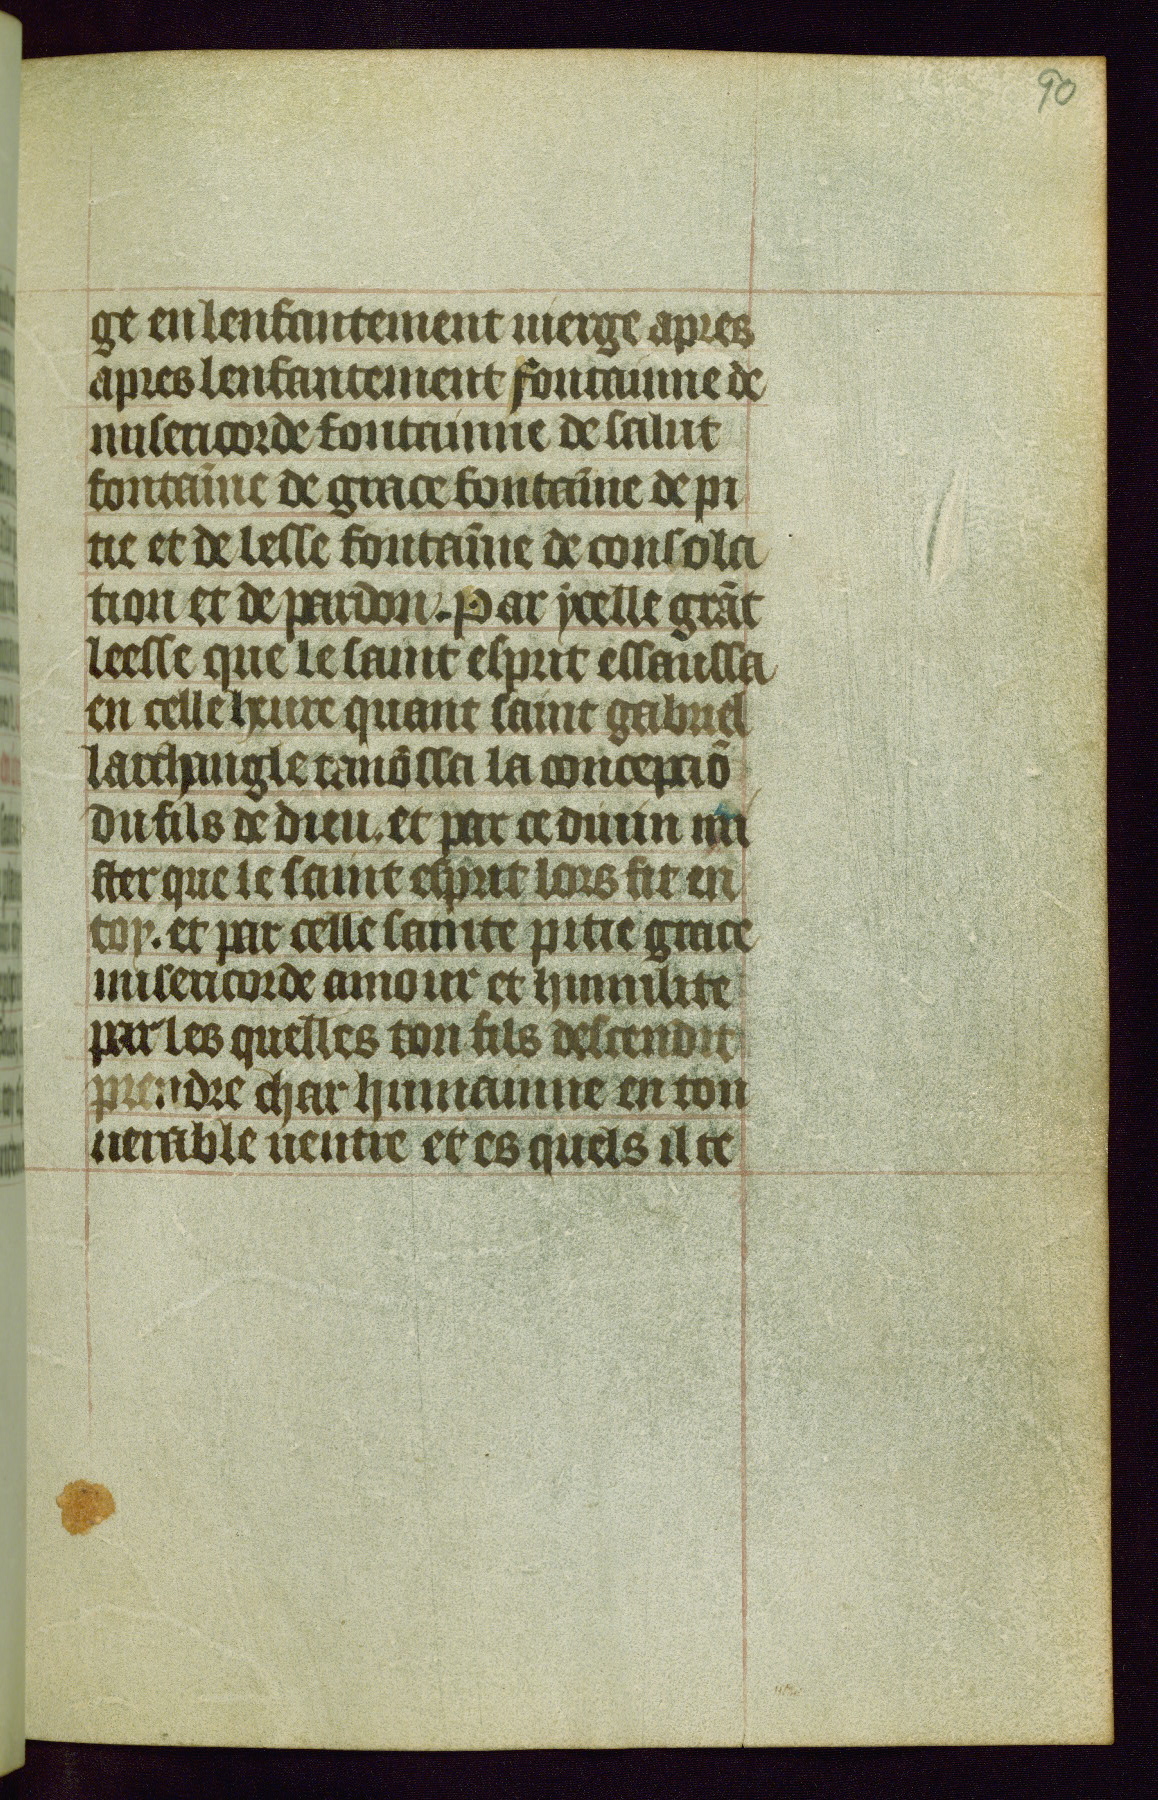 90
ge en lenfantement uierge apres
apres lenfantement fontainne de
misericorde fontainne de salut
fontaīne de grace fontaīne de pi
tie et de lesse fontaīne de consola
tion et de pardon. Par ycelle grāt
leesse que le saint esprit essaussa
en celle heure quant saint gabriel
larchangle tanōssa la conceptiō
du fils de dieu. et par ce diuin mi
ster que le saint esprit lors fit en
toy. et par celle sainte pitie grace
misericorde amour et humilite
par les quelles ton fils descendit
prendre char humainne en ton
uerable uentre et es quels il te